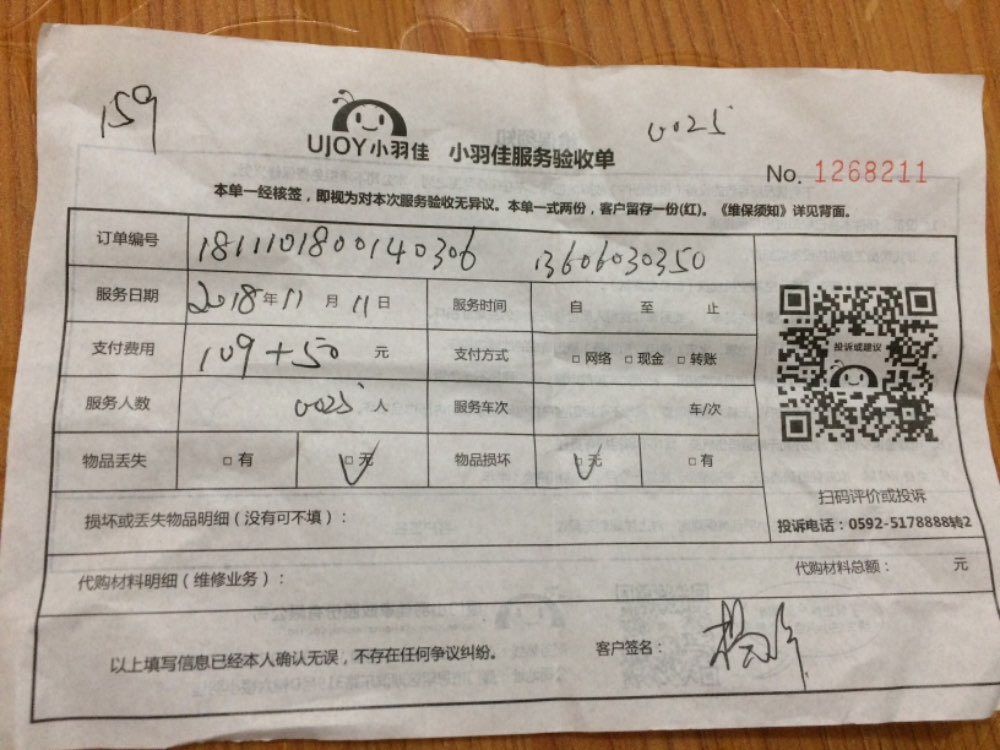 159
0025
UJOY小羽佳 小羽佳服务验收单
No. 1268211
本单一经核签，即视为对本次服务验收无异议。本单一式两份，客户留存一份(红)。《维保须知》详见背面。
订单编号 1811101800140306 13606030350
服务日期 2018年11月11日 服务时间 自 至 止
支付费用 109+50 元 支付方式 □网络 □现金 □转账
投诉或建议
服务人数 0025 人 服务车次 车/次
物品丢失 □有 □无 物品损坏 □无 □有
扫码评价或投诉
损坏或丢失物品明细（没有可不填）：
投诉电话：0592-5178888转2
代购材料明细（维修业务）： 代购材料总额： 元
以上填写信息已经本人确认无误，不存在任何争议纠纷。 客户签名：